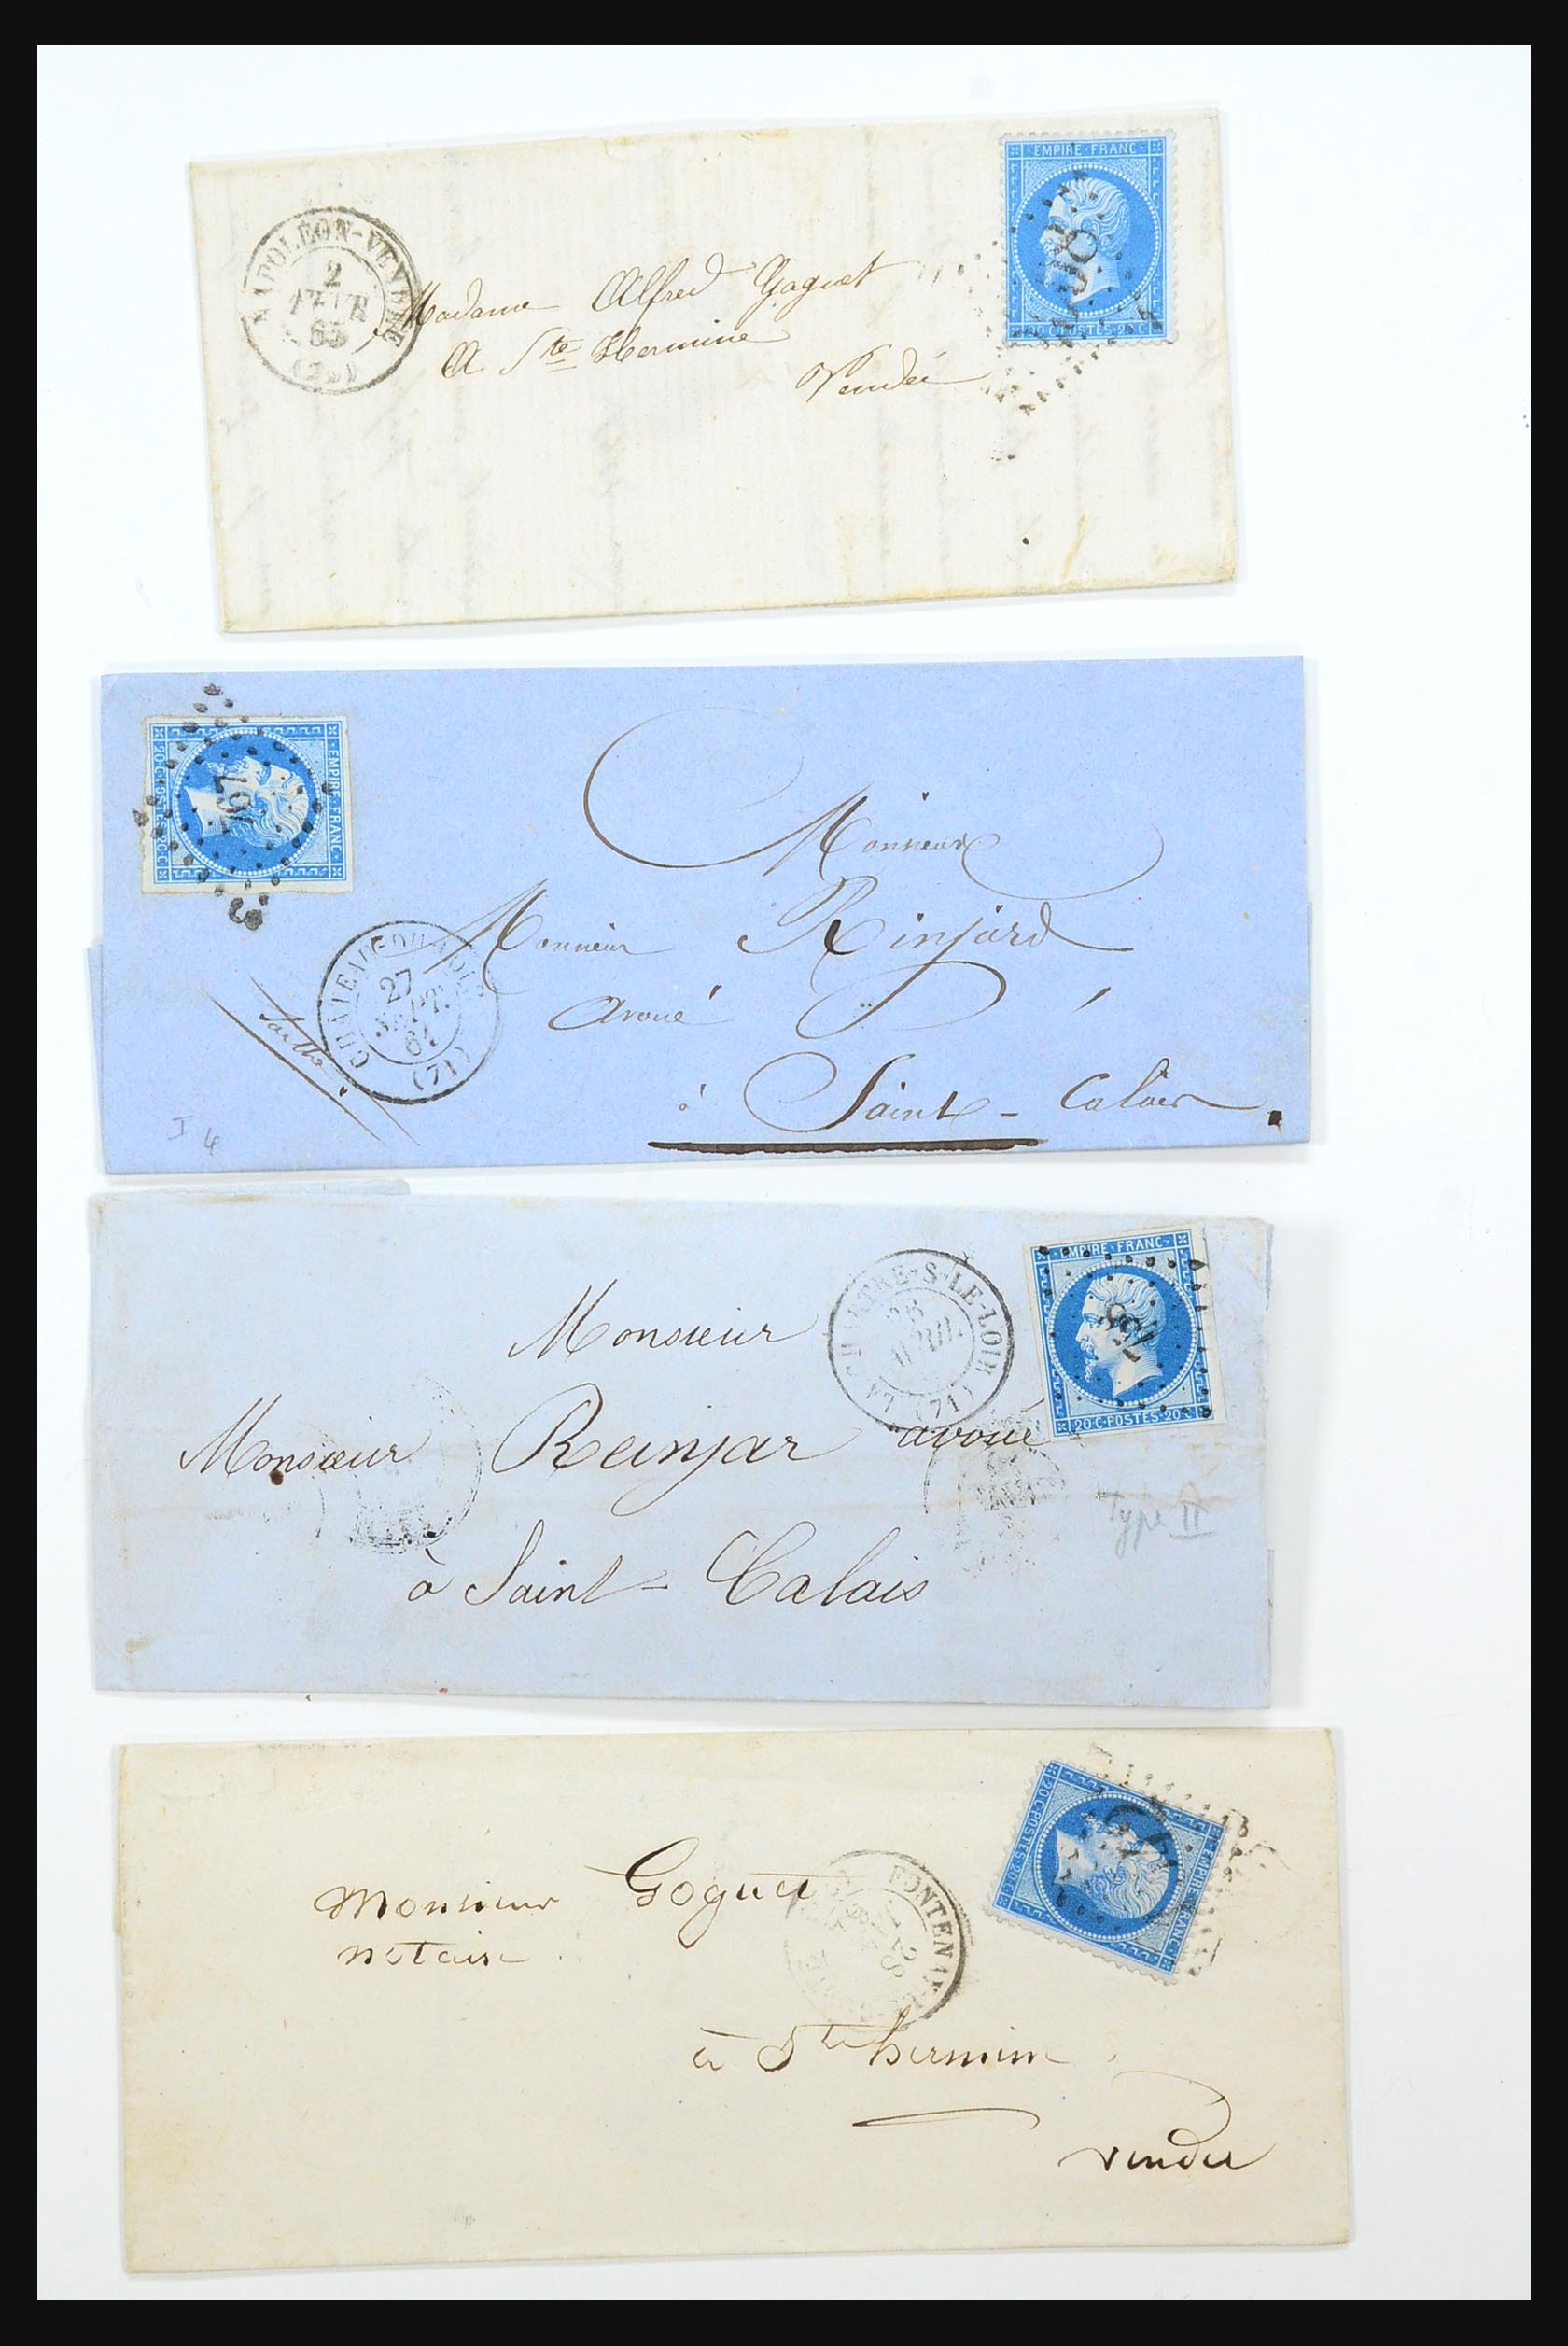 NAPOLÉON-VENDÉE
2
65
EMPIRE·FRANC·
20·C·POSTES·20·C
Madame Alfred Gaguet
A Ste Hermine
Vendée
EMPIRE·FRANC·
20·C·POSTES·20·C
767
Monsieur
Monsieur Rinjard
avoué
à Saint-Calais.
27
SEPT.
61
(71)
Sarthe
I 4
EMPIRE·FRANC·
20·C·POSTES·20·C
LA CHARTRE-S-LE-LOIR
(71)
Monsieur
Monsieur Reinjar avoué
à Saint-Calais
Type II
EMPIRE·FRANC·
20·C·POSTES·20·C
FONTENAY-LE
28
Monsieur Goguet
notaire
à Ste hermine
vendee